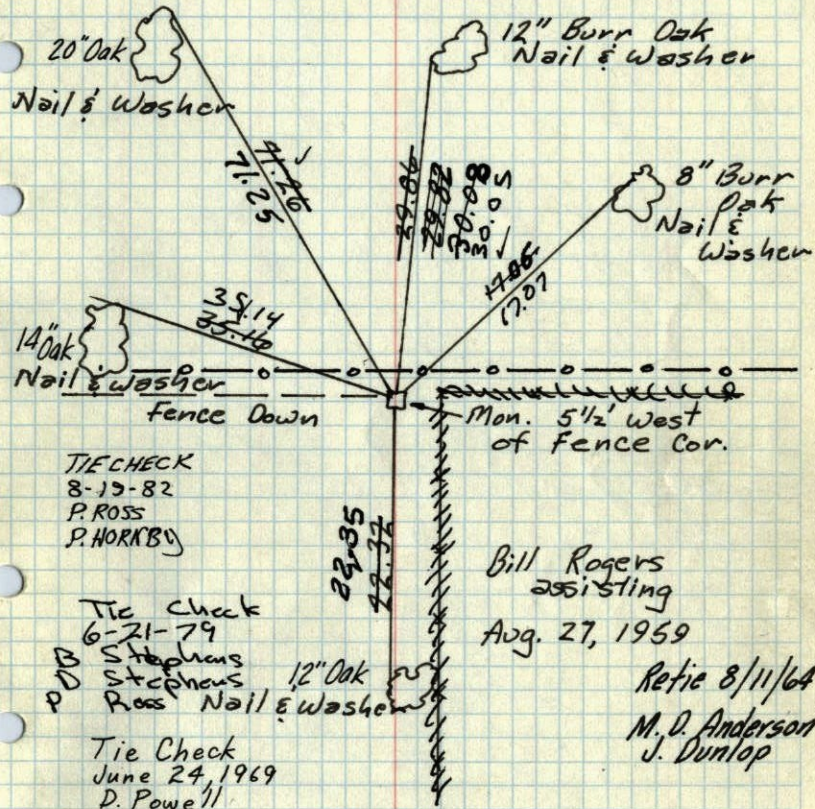 20" Oak
Nail & Washer
12" Burr Oak
Nail & Washer
71.26 ✓
71.25
29.86
29.82
30.08
30.05
8" Burr
Oak
Nail &
Washer
17.06 ✓
17.07
35.14
35.16
14" Oak
Nail & Washer
Fence Down
Mon. 5 1/2' West
of Fence Cor.
TIE CHECK
8-19-82
P. ROSS
P. HORNBY
22.35
22.32
Bill Rogers
assisting
Aug. 27, 1959
Tie Check
6-21-79
B Stephens
D Stephens
P Ross
12" Oak
Nail & Washer
Retie 8/11/64
M. D. Anderson
J. Dunlop
Tie Check
June 24, 1969
D. Powell